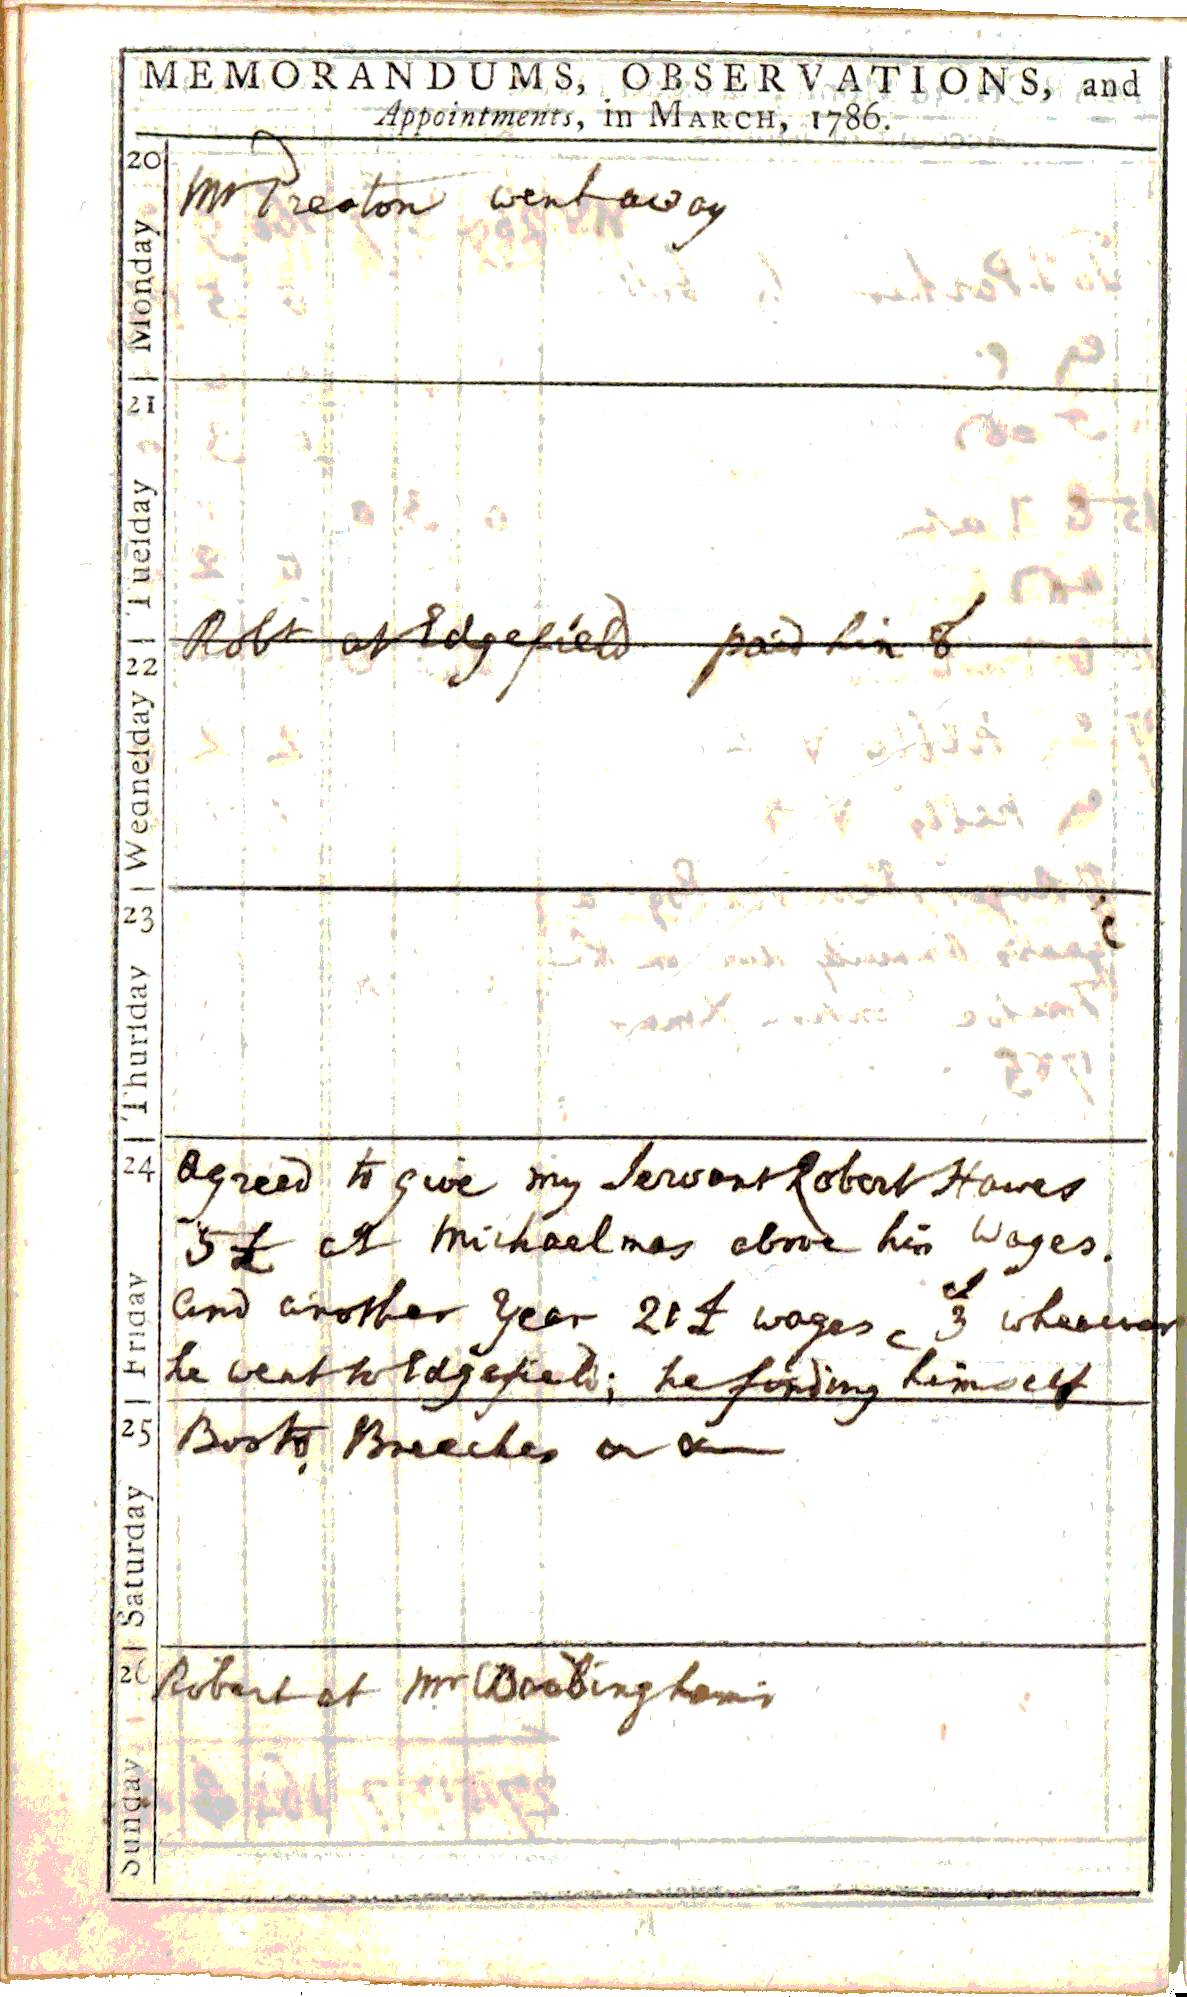 MEMORANDUMS, OBSERVATIONS, and
Appointments, in MARCH, 1786.
20
Monday
Mr Preston went away
21
Tueſday
Robt at Edgefield paid him
22
Wedneſday
23
Thurſday
24
Friday
Agreed to give my Servant Robert Hawes
5£ at Michaelmas above his Wages.
and another Year 21£ wages & whenever
he went to Edgefield; he finding himself
25
Saturday
Boots, Breeches
26
Sunday
Robert at Mr Brabingham's